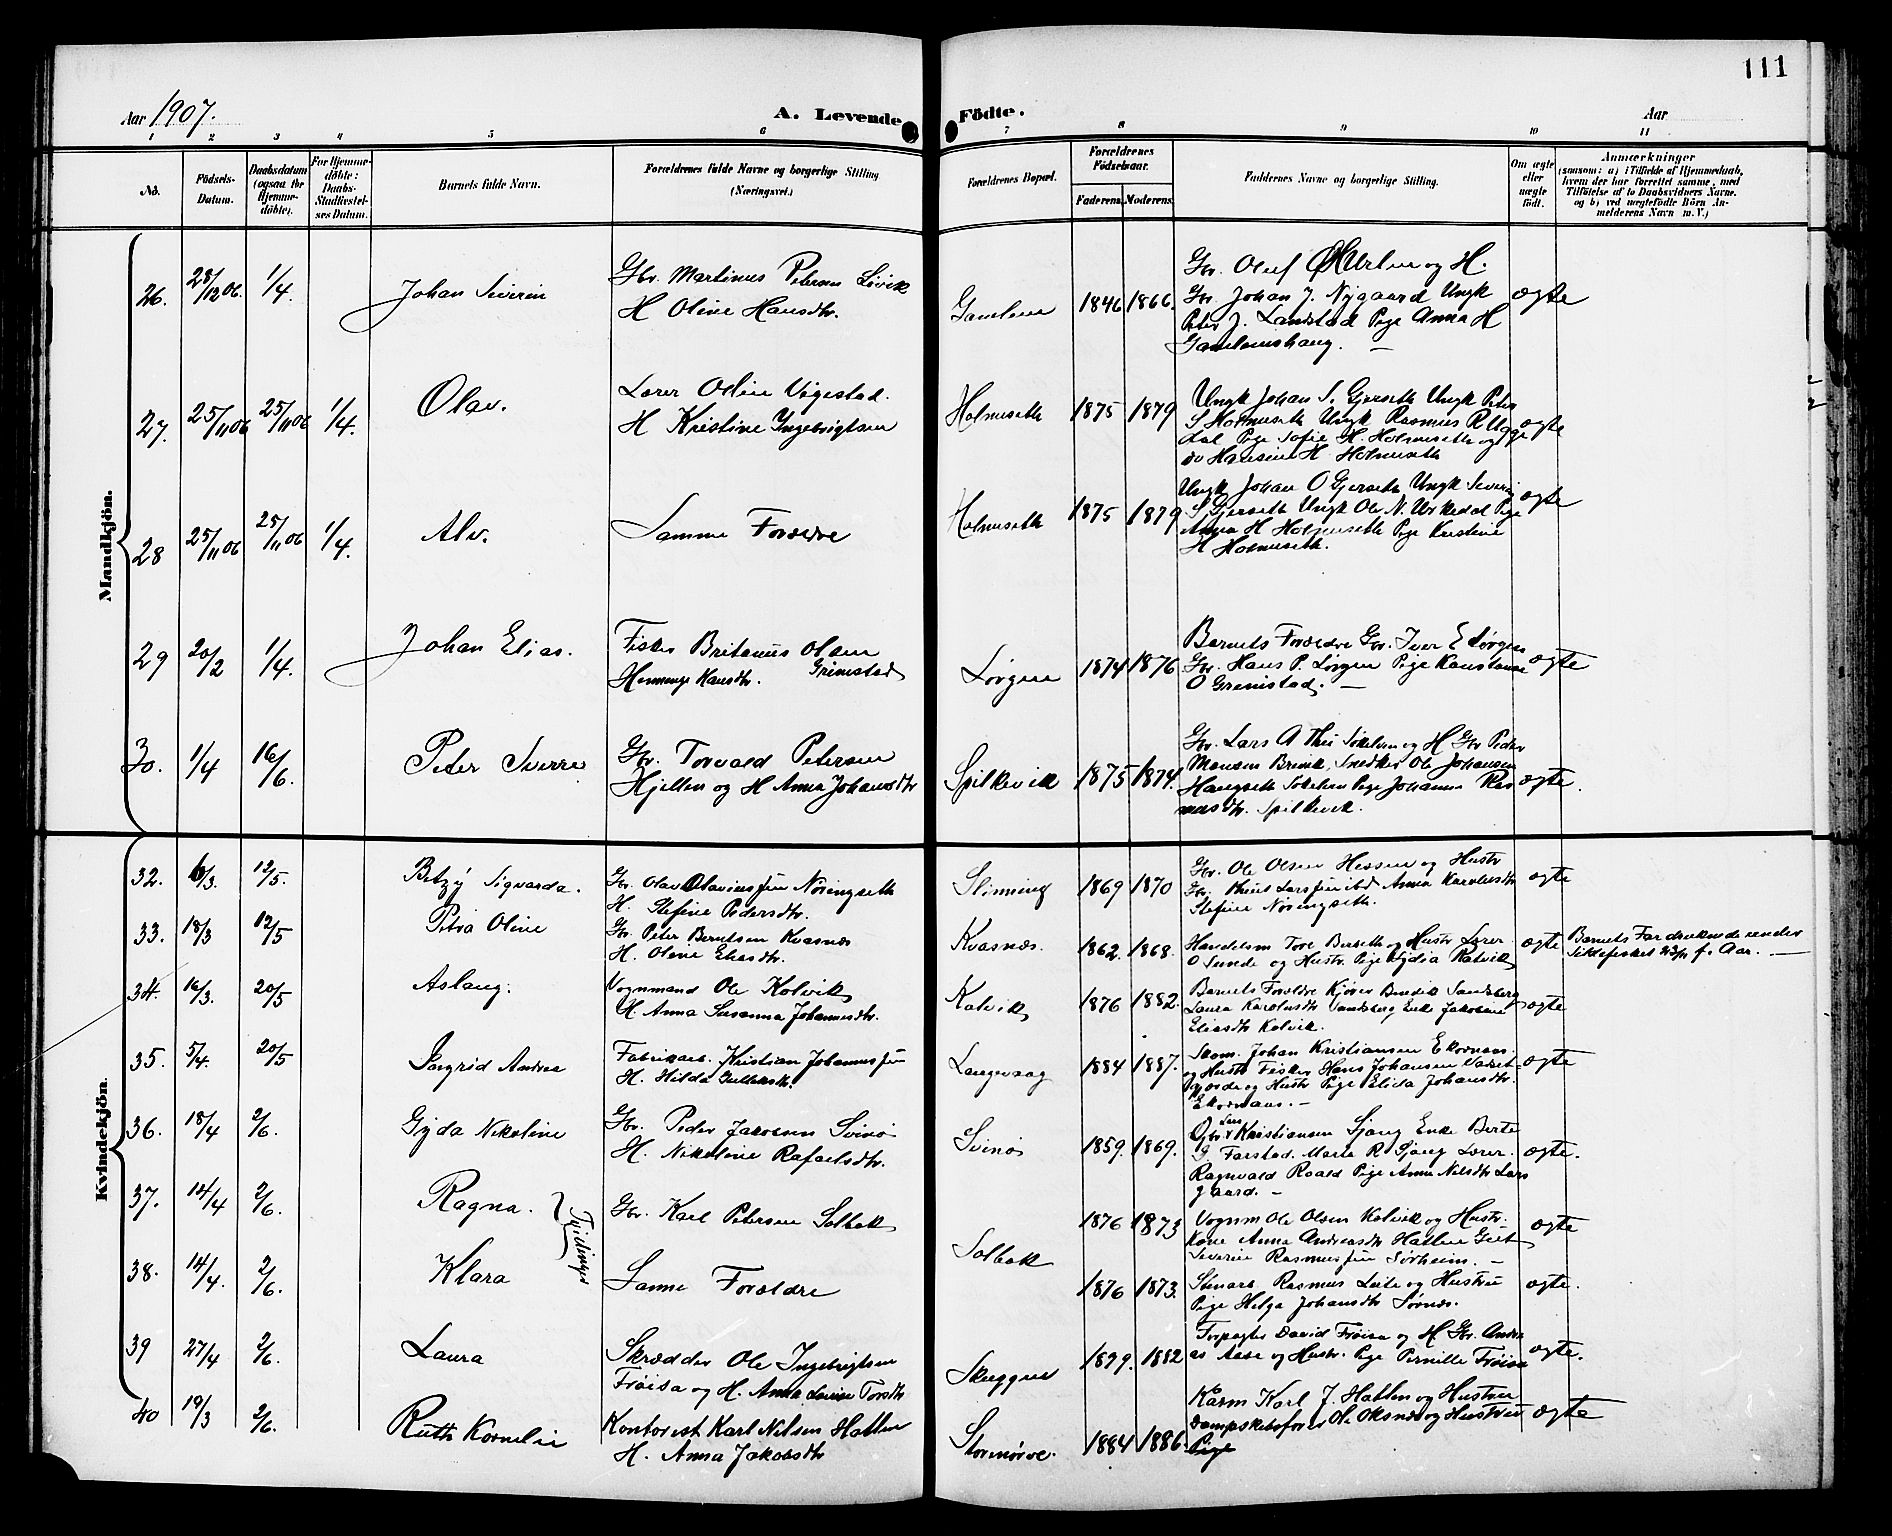 111
Aar 1907.
A. Levende Födte.
Aar
1 2 3 4 5 6 7 8 9 10 11
No.
Födsels-Datum.
Daabsdatum (ogsaa for Hjemme-döbte).
For Hjemme-döbte: Daabs-Stadfæstel-ses Datum.
Barnets fulde Navn.
Forældrenes fulde Navne og borgerlige Stilling (Næringsvei.)
Forældrenes Bopæl.
Forældrenes Födselsaar.
Faderens. Moderens.
Faddernes Navne og borgerlige Stilling.
Om ægte eller uægte födt.
Anmærkninger
(saasom: a) i Tilfælde af Hjemmedaab, hvem der har forrettet samme, med Tilföielse af to Daabsvidners Navne. og b) ved uægtefödte Börn An-melderens Navn m. V.)
Mandkjön.
26. 28/12 06. 1/4. Johan Severin
Gbr. Martinus Petersen Løvik
H Oline Hansdtr.
Gamlem 1846 1866.
Gbr. Oluf og H.
Gbr Johan J. Nygaard Ungk
Peter J. Landstad Pige Anna H
Gamlemshaug. —
ægte
27. 25/11 06 25/11 06 1/4. Olav.
Lærer Odin Vigestad.
H Kristine Ingebrigtsen
Holmeseth 1875 1879
Ungk Johan S. Gjerseth Ungk Peter
S Holmeseth Ungk Rasmus R Ug
dal Pige Sofie H. Holmeseth og
do Hansine H. Holmeseth
ægte
28 25/11 06 25/11 06 1/4. Alv.
Samme Forældre
Holmeseth 1875 1879
Ungk Johan O Gjerseth Ungk Severin
S Gjerseth Ungk Ole N. Urkedal Pige
Anna H Holmeseth Pige Kristine
H Holmeseth.
ægte
29 20/2 1/4. Johan Elias.
Fisker Britanus Olsen
Grimstad
Hansdtr.
Lørgen 1874 1876
Barnets Forældre Gbr. Iver E Lørgen
Gbr. Hans P. Lørgen Pige Konstanse
O Gremstad. —
ægte
30. 1/4 16/6. Peter Sverre
Gbr. Torvald Petersen
Hjellen og H Anna Johansdtr
Spilkevik 1875 1874.
Gbr. Lars A Søkelven og H Gbr Peder
Monsen Brevik Snedker Ole Johansen
Haugseth Søkelven Pige Johanna Ras
musdtr. Spilkevik.
ægte.
Kvindekjön.
32. 6/3. 12/5. Betzy Sigvarda.
Gbr. Olav Olavius sen Nöringseth
H. Stefine Pedersdtr.
Slinning 1869 1870
Gbr. Ole Olsen Hessen og Hustr
Gbr. Larssen ibd Anna Karolusdtr
Stefine Nöringseth.
ægte
33. 18/3 12/5 Petra Oline
Gbr. Peter Berntsen Kvasnes
H. Oline Eliasdtr.
Kvasnes. 1862. 1868.
Handelsm Tore Berseth og Hustr Lærer
O Sunde og Hustr. Pige Lydia Ratvik
ægte
Barnets Far druknede under
Sildefisket 23/1 f. Aar. —
34. 16/3. 20/5 Aslaug.
Vognmand Ole Kolvik
H. Anna Susanna Johannesdtr.
Kolvik 1876 1882.
Barnets Forældre Kjører Bendik Sandsberg
Laura Karolusdtr Sandsberg Enke Jakobine
Eliasdtr Kolvik.
ægte
35. 5/4. 20/5 Ingrid Andrea
Fabrikarb. Kristian Johannessen
H. Hilda
Langevaag 1884 1887.
Skom. Johan Kristiansen Ekornaas
og Hustr Fisker Hans Johansen
og Hustr Pige Elida Johansdtr.
Ekornaas. —
ægte
36. 18/4 2/6. Gyda Nikoline
Gbr. Peder Jakobsen Svinø
H. Nikoline Rafaelsdtr.
Svinø 1859. 1869.
Gbr Lars Kristiansen Sjong Enke Berte
J. Farstad. Marie R Sjong Lærer.
Ragnvald Roald Pige Anna Nilsdtr Lars
gaard. —
ægte.
37. 14/4 2/6. Ragna. Tvillinger
Gbr. Karl Petersen Solbak
Solbak 1876 1873
Vognm Ole Olsen Kolvik og Hustr.
Kone Anna Andreasdtr Hatlen Gut
Severin Rasmussen Sørheim. —
ægte
38. 14/4. 2/6. Klara
Samme Forældre
1876 1873.
Stenarb Rasmus Leite og Hustru
Pige Helga Johansdtr Sørnes.
ægte.
39 27/4 2/6. Laura
Skrædder Ole Ingebrigtsen
Frøisa og H. Anna Lovise Torsdtr
1879. 1882
Forpagter David Frøisa og H Gbr. Andre
as Aase og Hustr. Pige Pernille Frøisa
ægte.
40 19/3 2/6. Ruth Kornelie
Kontorist Karl Nilsen Hatlen
H. Anna Jakobsdtr
Stornørve. 1884 1886.
Karl J. Hatlen og Hustru
Dampskibsfører Ole Oksnes og Hustru
Pige
ægte